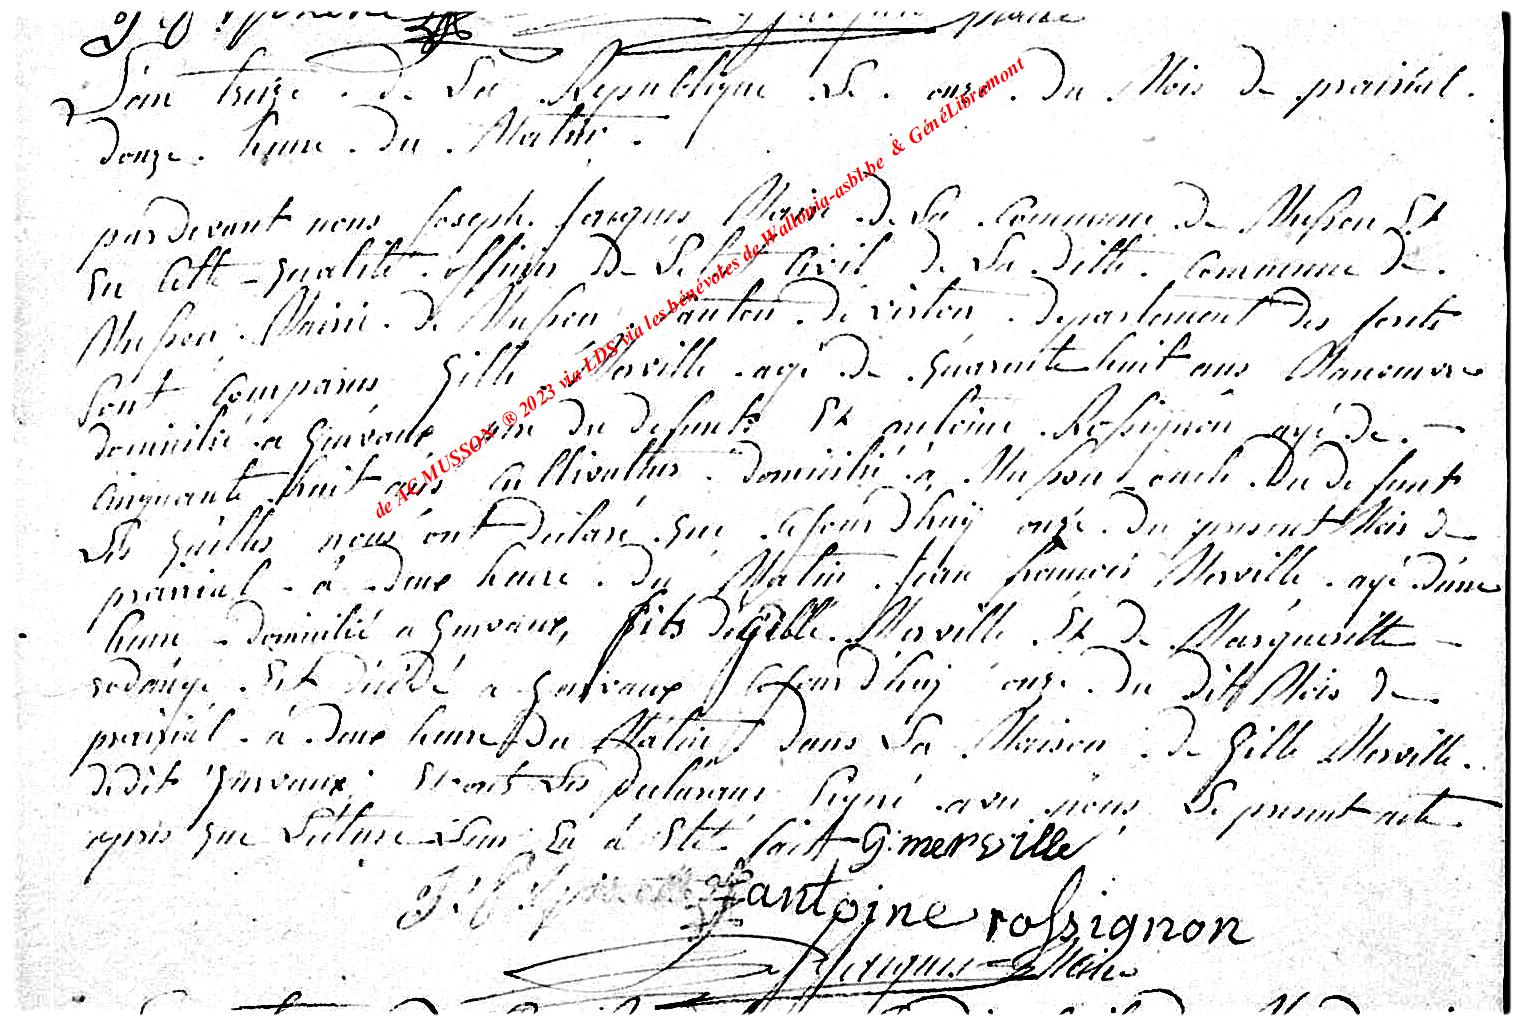 L'an treize de La Republique Le onze du Mois de prairial.
douze heure du Matin.
pardevant nous Joseph Jacques Maire de La Commune de Musson Et
En Cette qualité officier de L'etat Civil de La ditte Commune de
Musson Mairie de Musson Canton de virton departement des forets
sont Comparus Gille Merville agé de quarante huit ans Manoeuvre
domicilié a Gevaux pere du defunt Et antoine Rossignon agé de
cinquante huit ans Cultivateur domicilié à Musson oncle du defunt
Les quelles nous ont déclaré que Cejourd'huy onze du present Mois de
prairial à deux heure du Matin Jean françois Merville agé d'une
heure domicilié a Gevaux, fils de Gille Merville Et de Margueritte
rodange Est décédé a Gevaux Cejourd'huy onze du dit Mois de
prairial à deux heure du Matin dans La Maison de Gille Merville
dudit Gevaux; Et ont Les declarans signé avec nous Le present acte
apres que Lecture Leur En à Eté fait G: merville
antoine rossignon
J Jacques Maire
de AC MUSSON ® 2023 via LDS via les bénévoles de Wallonia-asbl.be & GénéLibramont